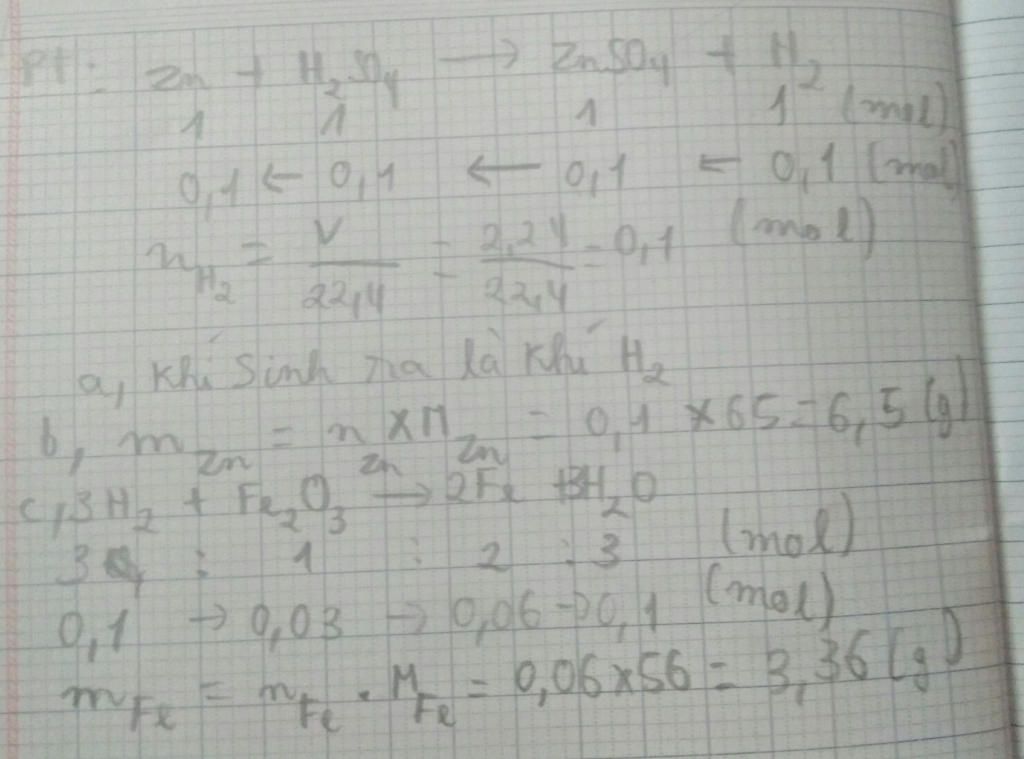 Pt: Zn + H₂SO₄ → ZnSO₄ + H₂
1 1 1 1 (mol)
0,1 ← 0,1 ← 0,1 ← 0,1 (mol)
n_H₂ = V/22,4 = 2,24/22,4 = 0,1 (mol)
a, Khí sinh ra là khí H₂
b, m_Zn = n_Zn × M_Zn = 0,1 × 65 = 6,5 (g)
c, 3H₂ + Fe₂O₃ → 2Fe + 3H₂O
3 : 1 : 2 : 3 (mol)
0,1 → 0,03 → 0,06 → 0,1 (mol)
m_Fe = n_Fe . M_Fe = 0,06 × 56 = 3,36 (g)